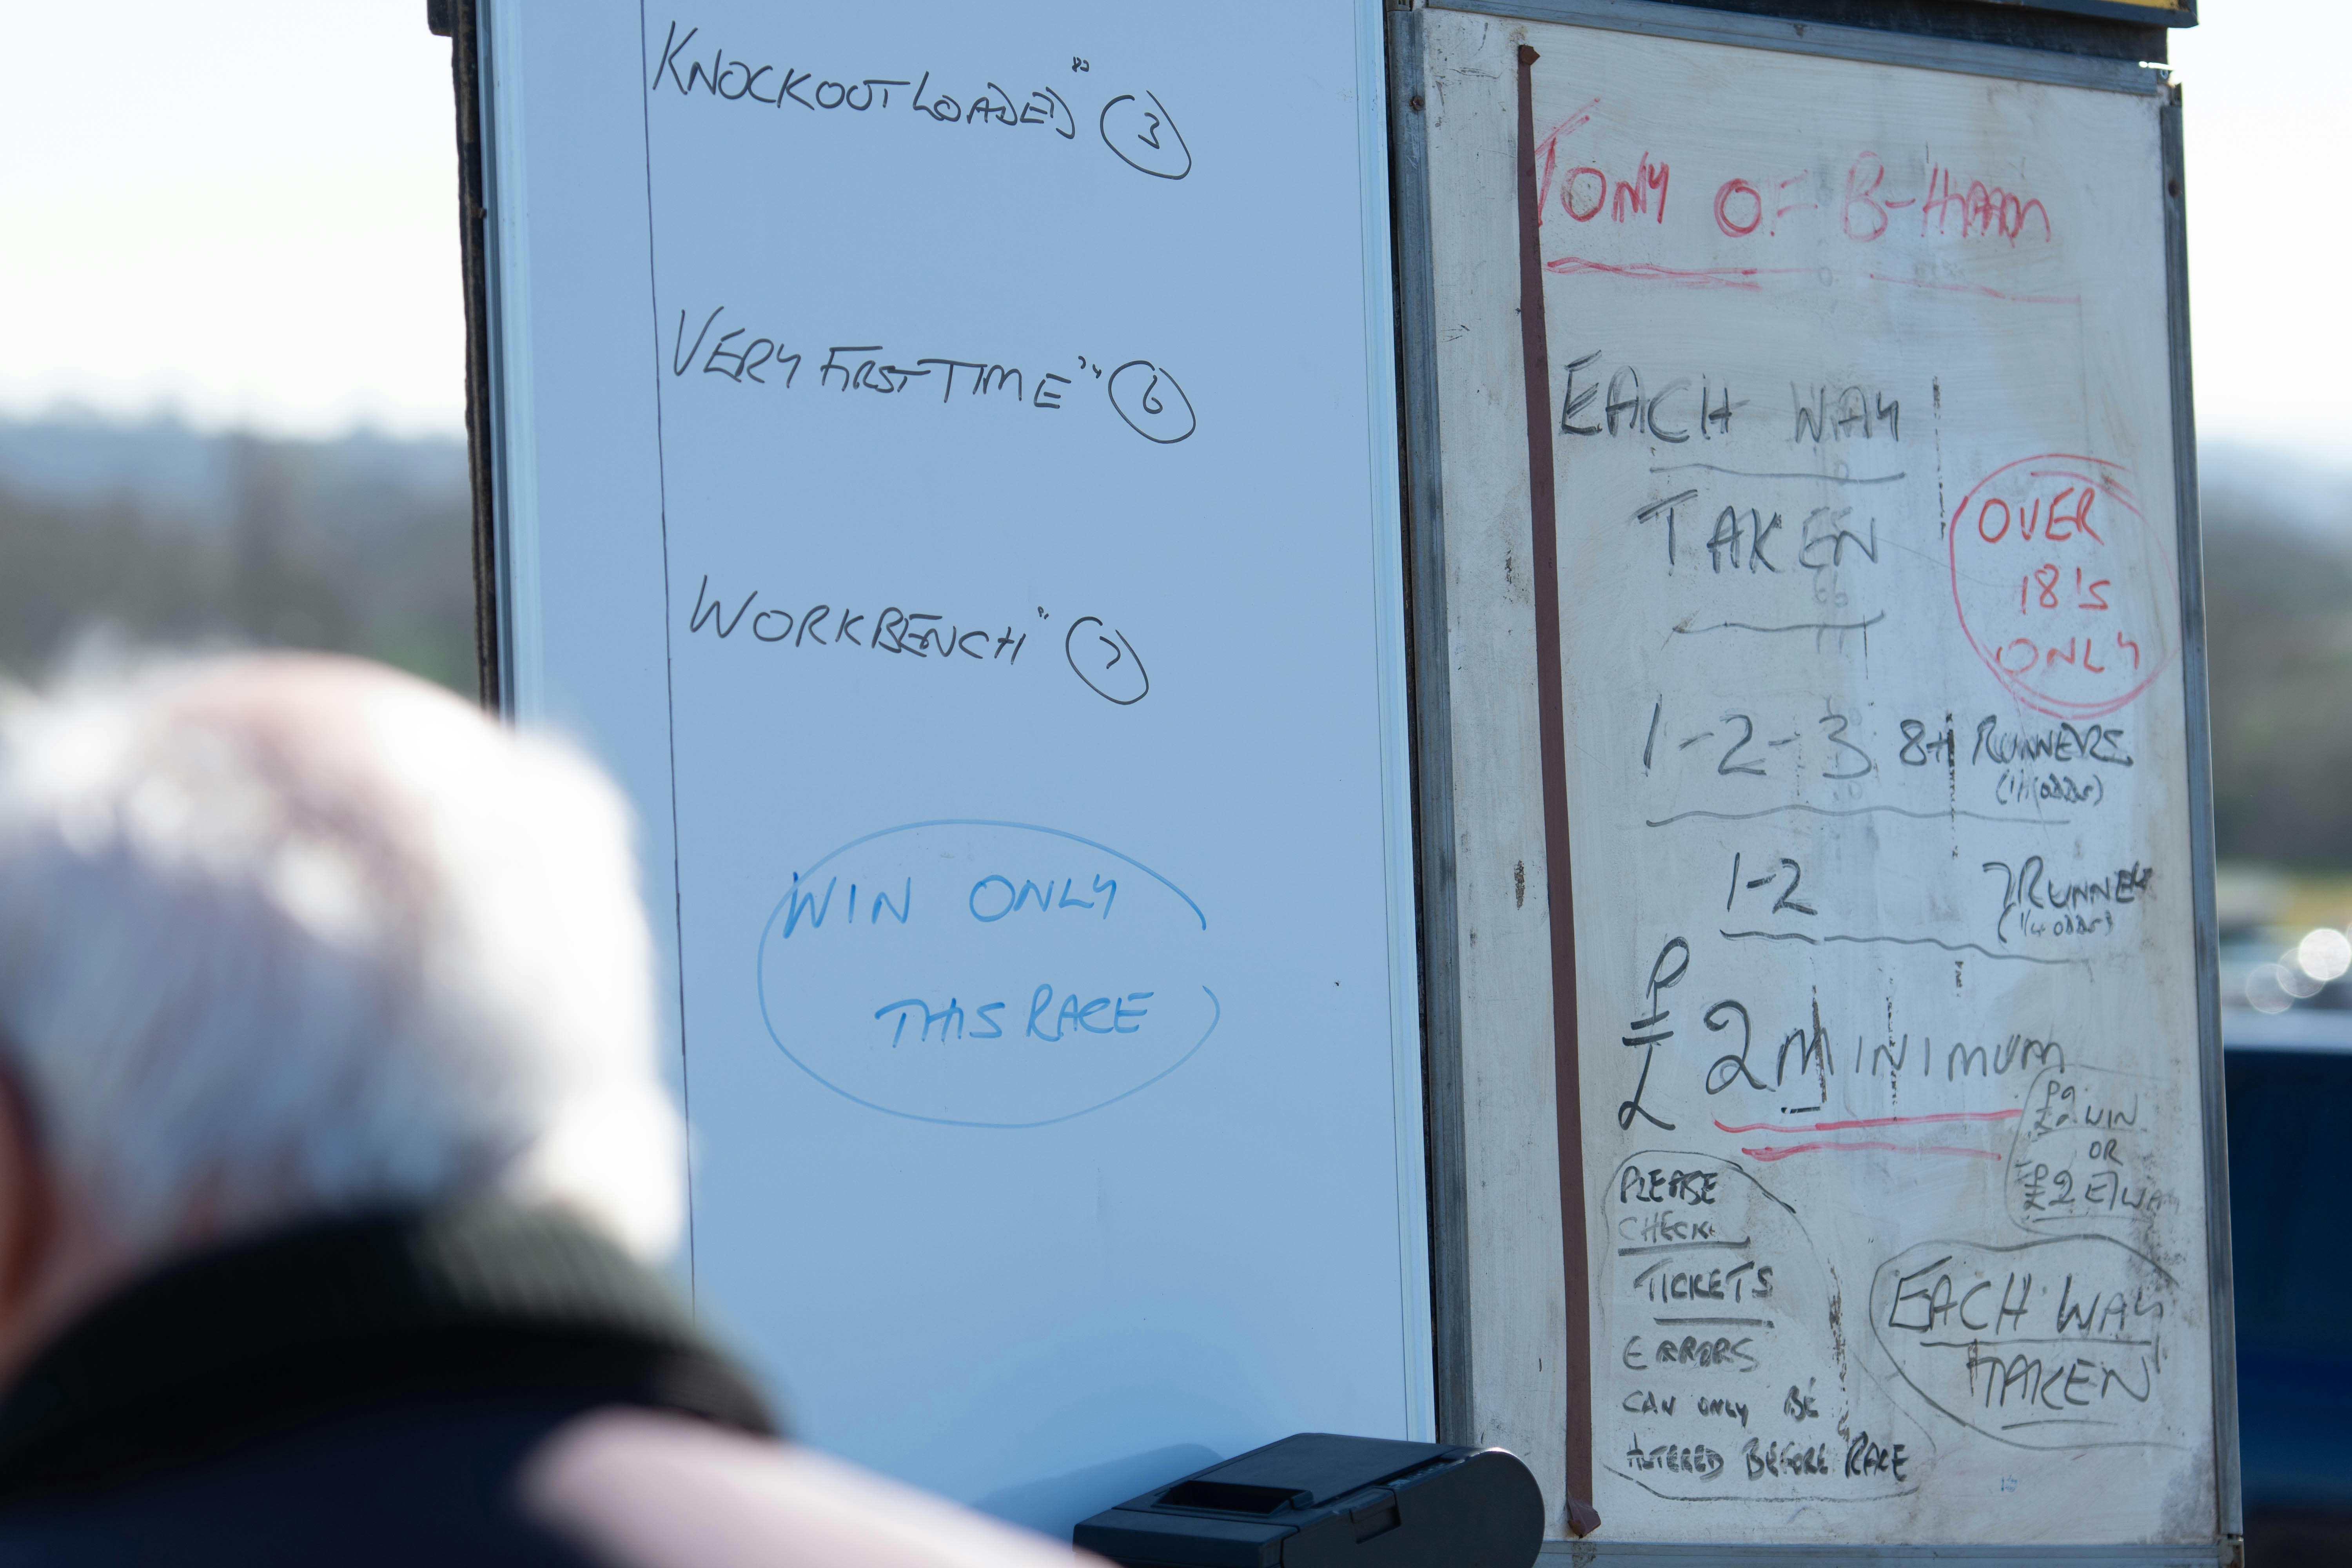 KNOCKOUT LOADED" (3)
VERY FIRST TIME" (6)
WORKBENCH" (7)
WIN ONLY
THIS RACE
TONY OF B-HAM
EACH WAY
TAKEN
OVER
18'S
ONLY
1-2-3 8+ RUNNERS
1-2 7 RUNNER
(1/4 odds)
£2 MINIMUM
£2 WIN
OR
£2 E/WAY
PLEASE
CHECK
TICKETS
ERRORS
CAN ONLY BE
ALTERED BEFORE RACE
EACH WAY
TAKEN